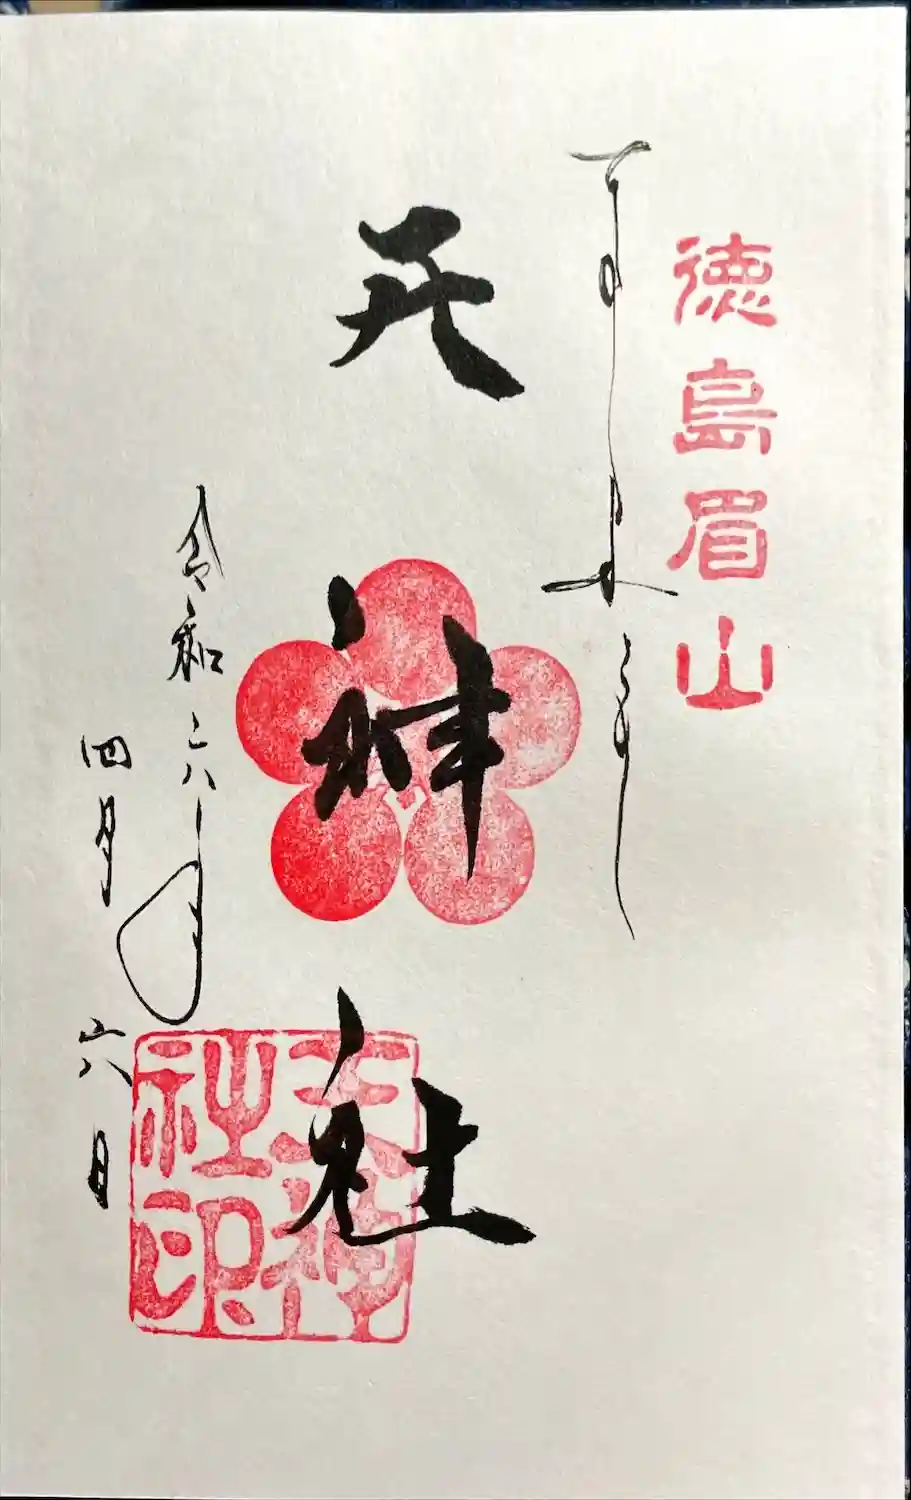 徳島眉山
奉拝
天神社
天神社印
令和六年
四月六日